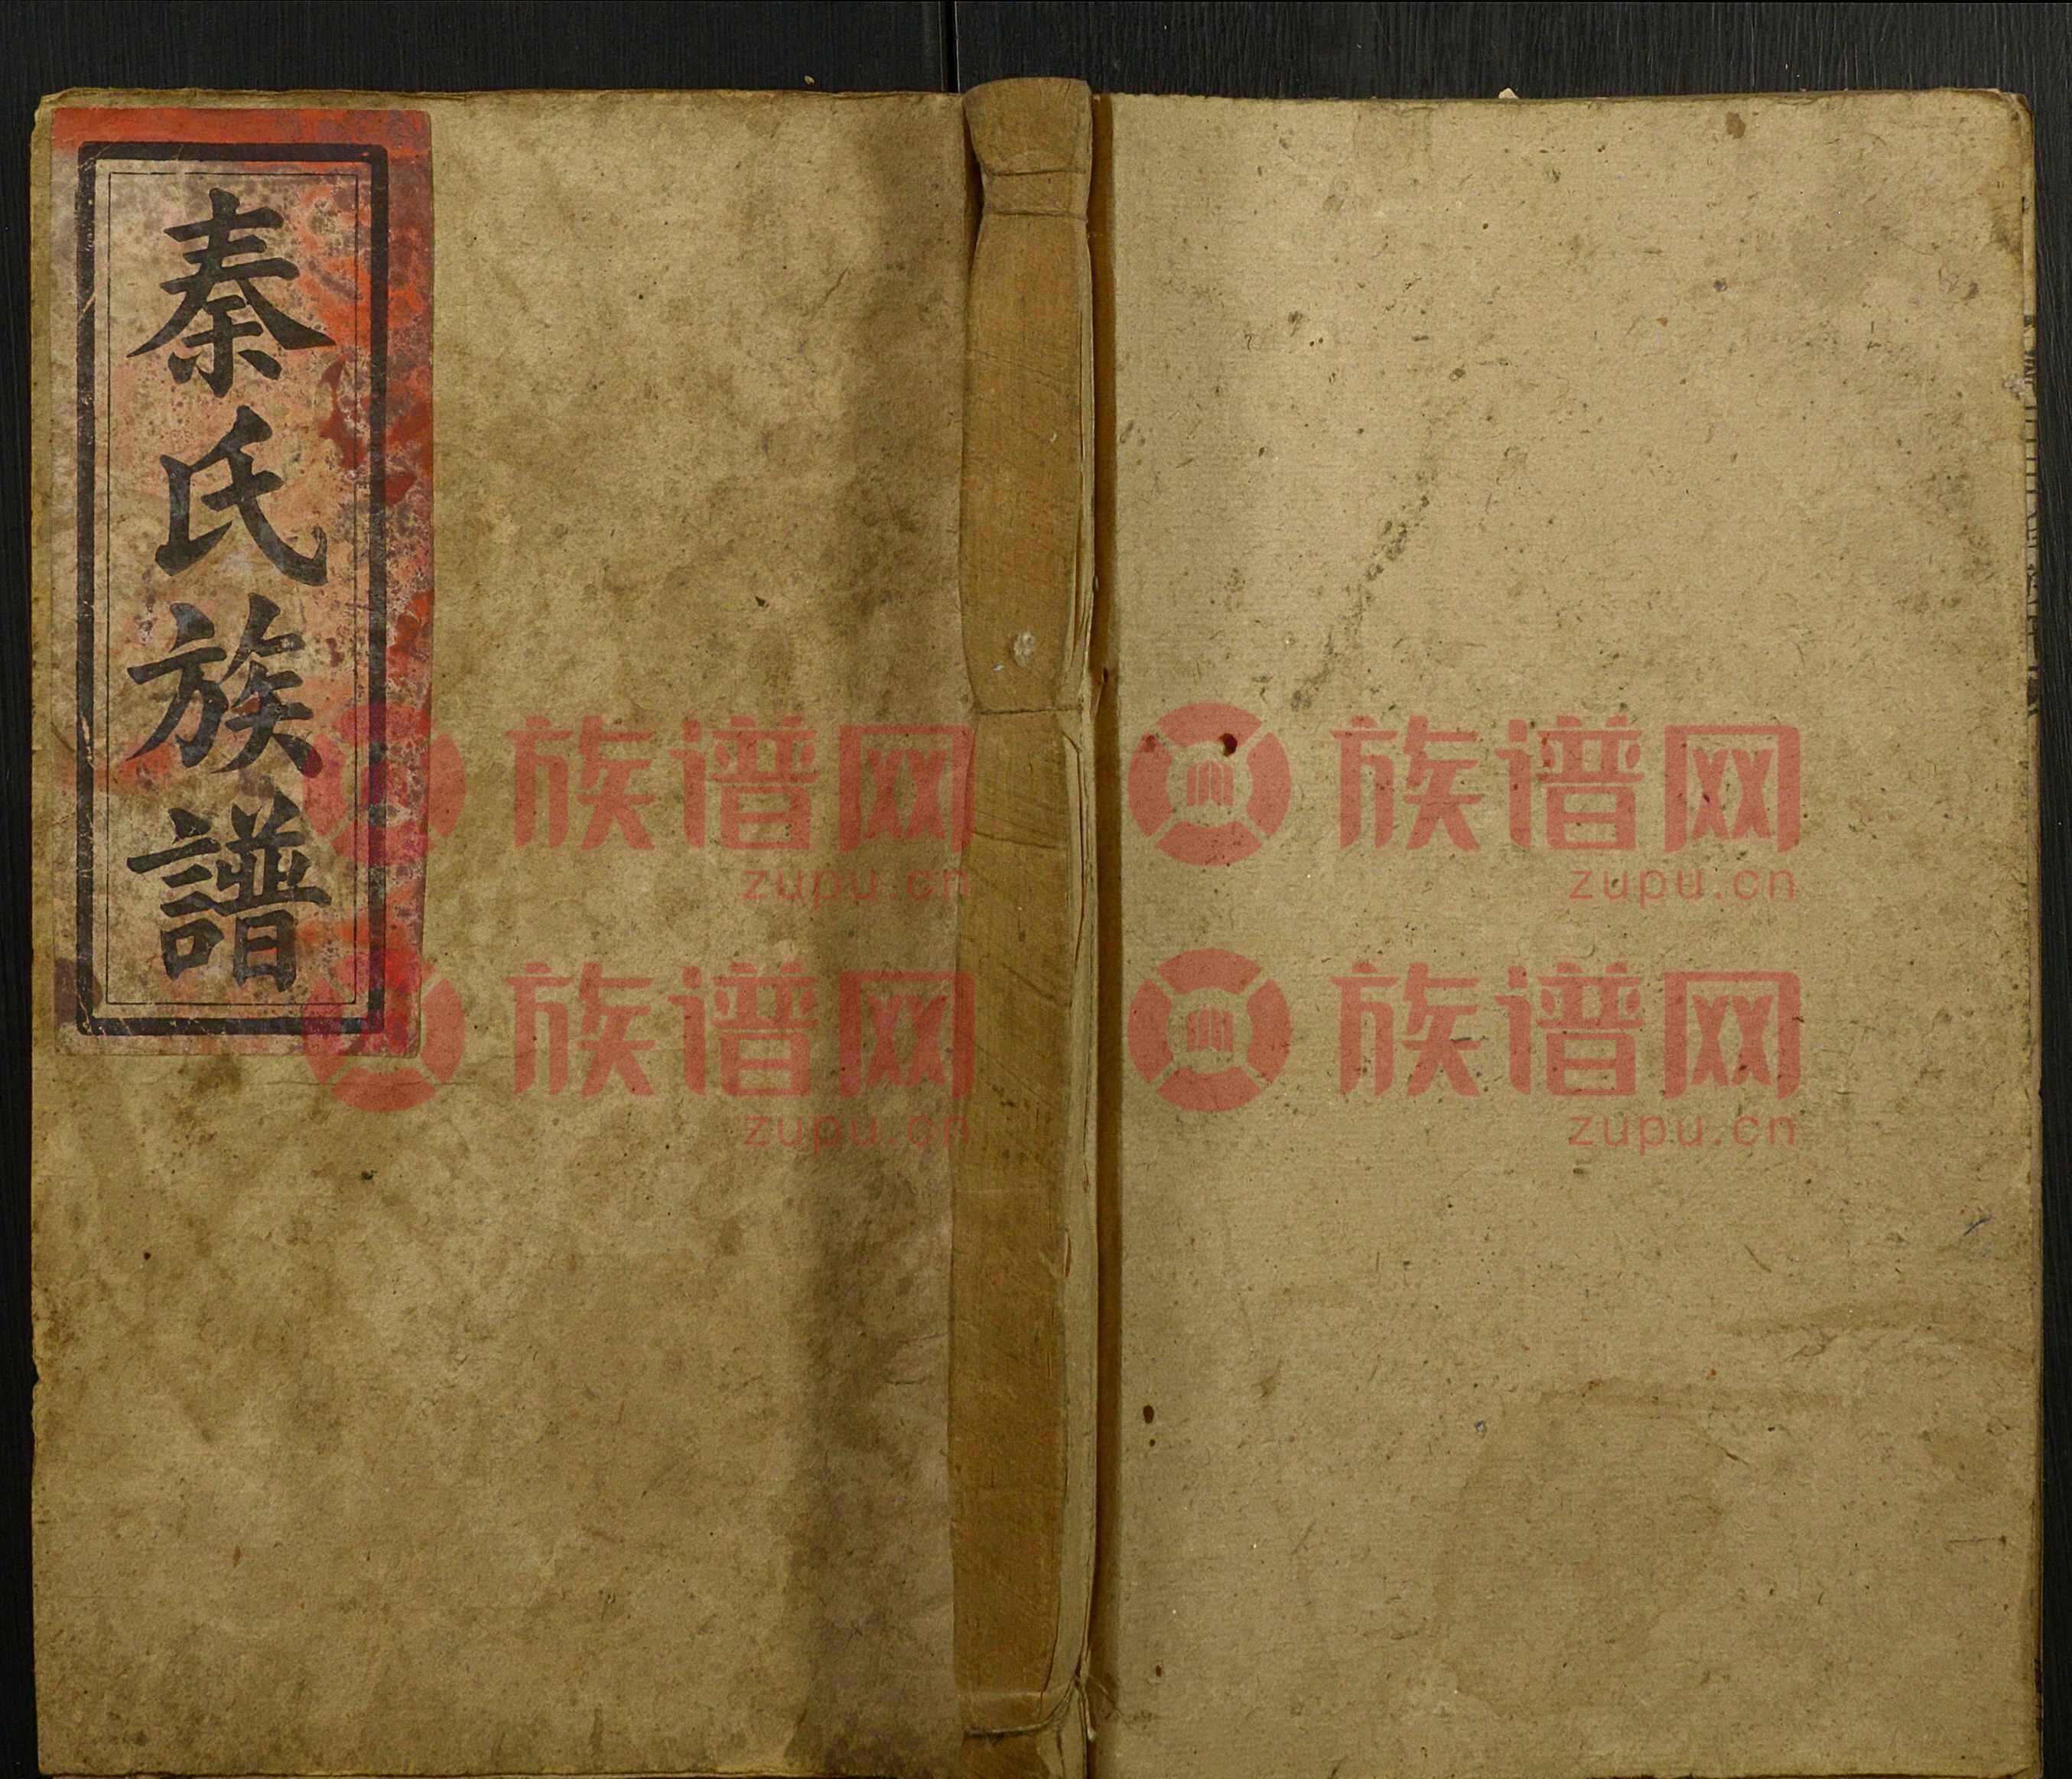 秦氏族譜
族谱网
zupu.cn
族谱网
zupu.cn
族谱网
zupu.cn
族谱网
zupu.cn